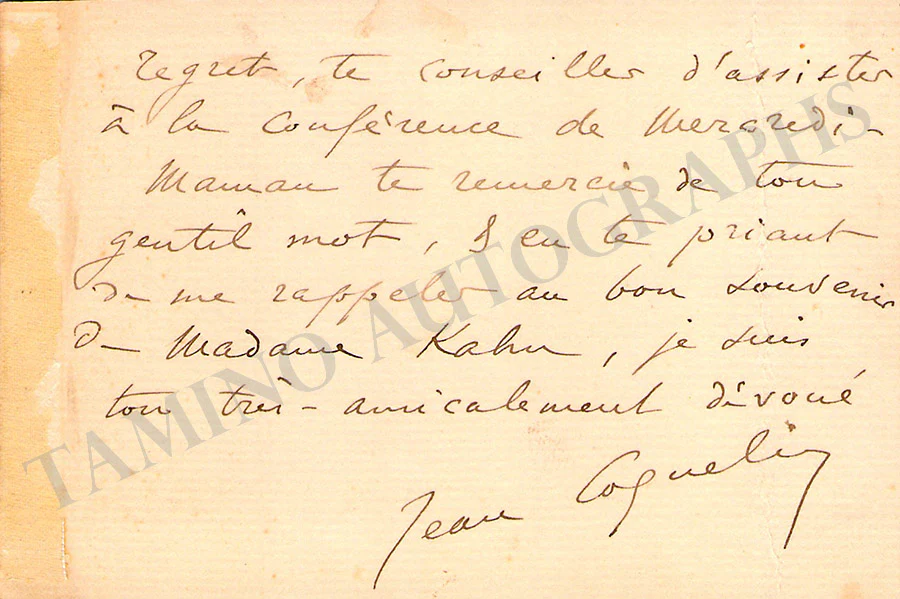 regret, te conseiller d'assister
à la conférence de Mercredi -
Maman te remercie de ton
gentil mot, & en te priant
de me rappeler au bon souvenir
de Madame Kahn, je suis
ton très-amicalement dévoué
Jean Coquelin
TAMINO AUTOGRAPHS